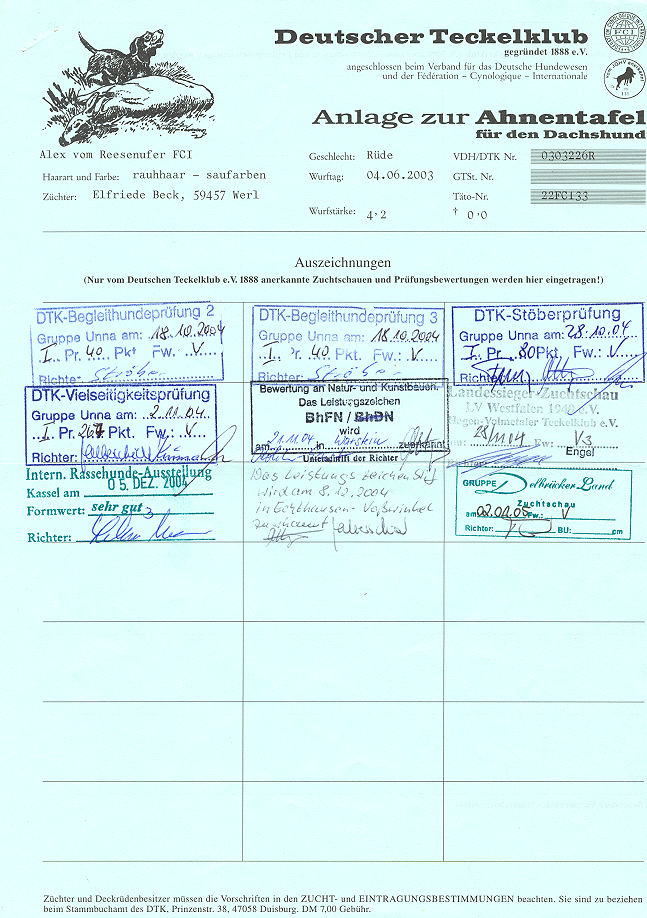 Deutscher Teckelklub
gegründet 1888 e.V.
angeschlossen beim Verband für das Deutsche Hundewesen
und der Fédération – Cynologique – Internationale
FCI
Anlage zur Ahnentafel
für den Dachshund
Alex vom Reesenufer FCI
Haarart und Farbe: rauhhaar – saufarben
Züchter: Elfriede Beck, 59457 Werl
Geschlecht: Rüde
Wurftag: 04.06.2003
Wurfstärke: 4,2
VDH/DTK Nr. 0303226R
GTSt. Nr.
Täto-Nr. 22FC133
† 0,0
Auszeichnungen
(Nur vom Deutschen Teckelklub e.V. 1888 anerkannte Zuchtschauen und Prüfungsbewertungen werden hier eingetragen!)
DTK-Begleithundeprüfung 2
Gruppe Unna am: 18.10.2004
I. Pr. 40. Pkt Fw.: V
Richter:
DTK-Begleithundeprüfung 3
Gruppe Unna am: 18.10.2004
I. Pr. 40. Pkt. Fw.: V
Richter:
DTK-Stöberprüfung
Gruppe Unna am: 28.10.04
I. Pr. 80 Pkt. Fw.: V
Richter:
DTK-Vielseitigkeitsprüfung
Gruppe Unna am: 2.11.04
I Pr. 267 Pkt. Fw.: V
Richter:
Bewertung an Natur- und Kunstbauen.
Das Leistungszeichen
BhFN / BhDN
wird
am 21.11.04 in Warstein zuerkannt
Unterschrift der Richter
Landessieger-Zuchtschau
LV Westfalen e.V.
Volmetaler Teckelklub e.V.
28/11/04 Fw: V3
Engel
Intern. Rassehunde-Ausstellung
Kassel am 05. DEZ. 2004
Formwert: sehr gut 3
Richter:
Das Leistungszeichen
wird am 8.12.2004
in
zuerkannt
GRUPPE Delbrücker Land
Zuchtschau
am 02.01.05 Fw.: V
Richter: BU: cm
Züchter und Deckrüdenbesitzer müssen die Vorschriften in den ZUCHT- und EINTRAGUNGSBESTIMMUNGEN beachten. Sie sind zu beziehen
beim Stammbuchamt des DTK, Prinzenstr. 38, 47058 Duisburg. DM 7,00 Gebühr.